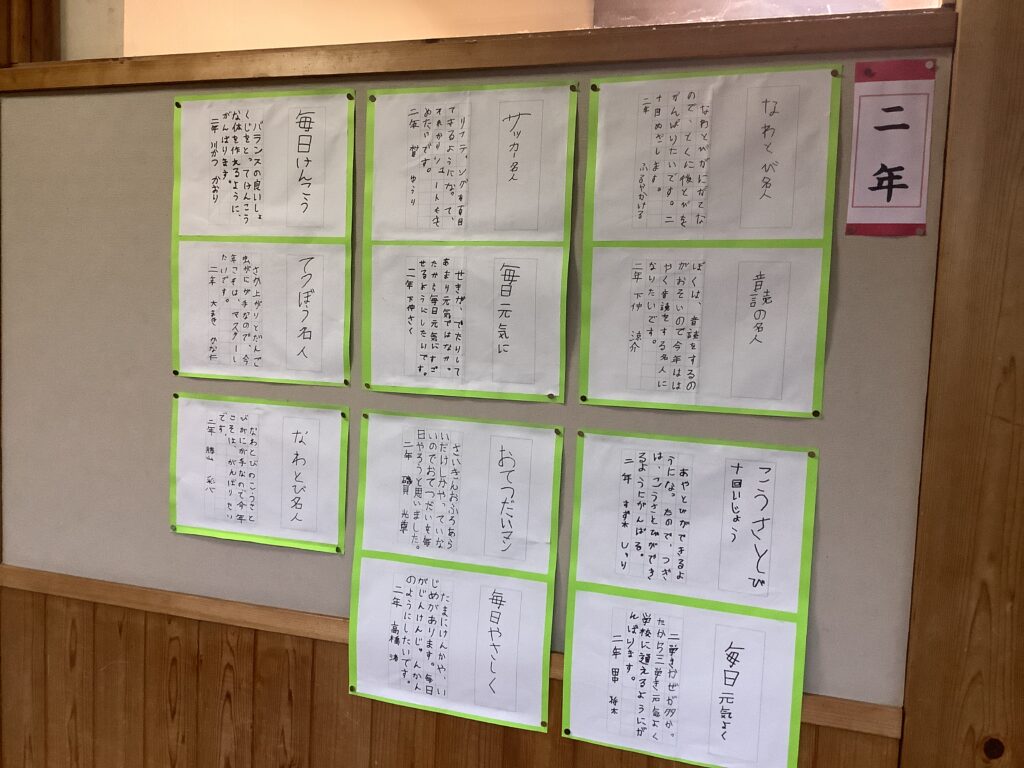 二年
なわとび名人
なわとびがにがてな
ので、とくに後とびを
がんばりたいです。二
十回めざします。
二年
音読の名人
ぼくは、音読をするの
がおそいので今年はは
やく音読をする名人に
なりたいです。
二年 下仲 涼介
サッカー名人
リフティング
できるようになって、
それからシュートもき
めたいです。
二年 ゆうり
毎日元気に
せきが、でたりして
あまり元気ではなかっ
たから毎日元気にすご
せるようにしたいです。
二年 下仲さく
毎日けんこう
バランスの良いしょ
くじをとってけんこう
な体を作れるように、
がんばります。
二年 川かつ かおり
てつぼう名人
さか上がりとだんご
虫がにが手なので、今
年こそは、マスターし
たいです。
二年 大まき
こうさとび
十回いじょう
あやとびができるよ
うになったので、つぎ
は、こうさとびができ
るようにがんばる。
二年 すず木
毎日元気よく
二学きかぜが多かっ
たから三学き元気よく
学校に通えるようにが
んばります。
二年
おてつだいマン
さいきんおふろあら
いだけしかやっていな
いのでおてつだいを毎
日やろうと思いました。
二年 磯貝
毎日やさしく
たまにけんかや、い
じめがあります。毎日
がじんけんしゅうかん
のようにしたいです。
二年 高橋
なわとび名人
なわとびのこうさと
びがにが手なので今年
こそは、がんばりたい
です。
二年 勝山